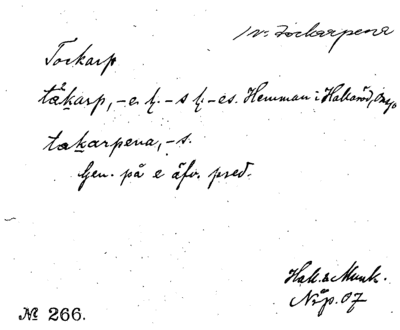 /v. Tockarpena
Tockarp
tåkarp, -e. h. -s h. -es. Hemman i Halkaröd,
takarpena, -s.
Gen. på e äfv. pred.
Hall. & Munk.
Nip. 07
№ 266.